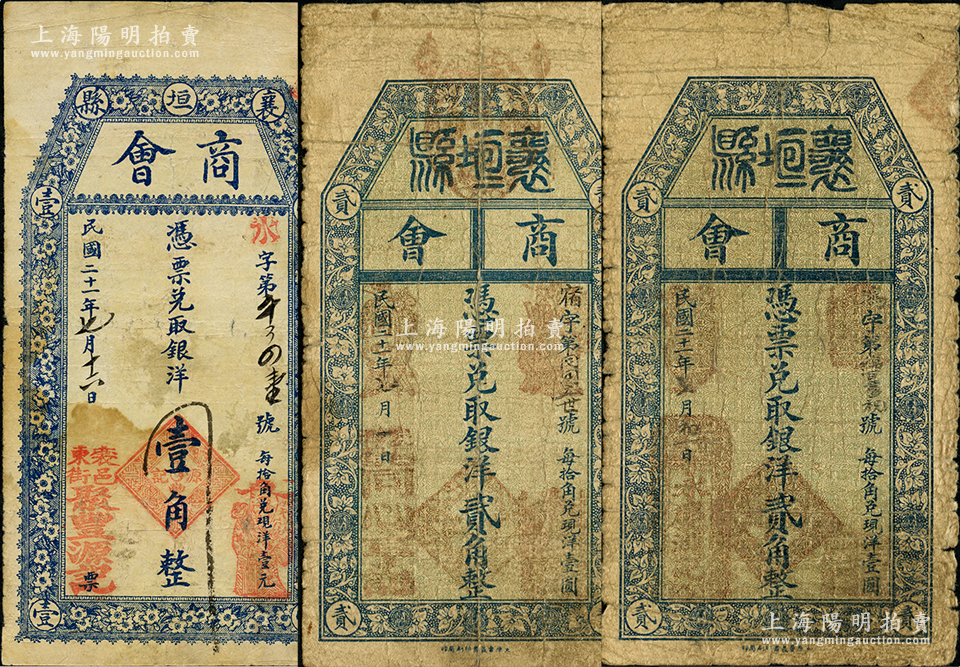 上海陽明拍賣
www.yangmingauction.com
襄垣縣
商會
壹
永字第 號 每拾角兌現洋壹元
憑票兌取銀洋壹角整
民國二十一年七月十六日
襄邑
東街
聚豐源記
票
壹
壹
襄垣縣
貳
商會
宿字第 號 每拾角兌現洋壹圓
憑票兌取銀洋貳角整
民國二十一年 月 日
貳
上海陽明拍賣
www.yangmingauction.com
襄垣縣
貳
貳
商會
字第 號 每拾角兌現洋壹圓
憑票兌取銀洋貳角整
民國二十一年 月 日
貳
貳
上海陽明拍賣
www.yangmingauction.com